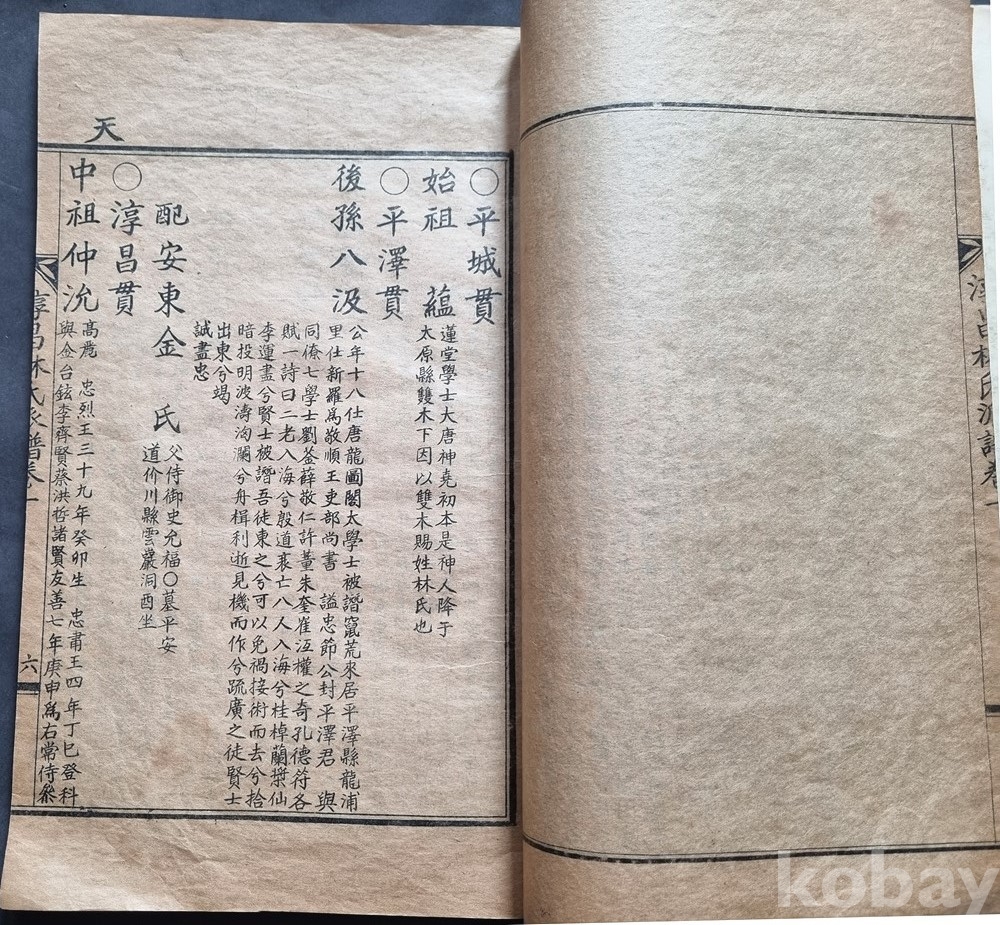 淳昌林氏派譜卷一
天
○平城貫
始祖 蘊
蓮堂學士大唐神堯初本是神人降于
太原縣雙木下因以雙木賜姓林氏也
○平澤貫
後孫八汲
公年十八仕唐龍圖閣太學士被譖竄荒來居平澤縣龍浦
里仕新羅爲敬順王吏部尚書 謚忠節公封平澤君 與
同僚七學士劉荃薛敬仁許董朱奎崔冱權之奇孔德符各
賦一詩曰二老入海兮殷道衰亡八人入海兮桂棹蘭槳仙
李運盡兮賢士被譖吾徒東之兮可以免禍接術而去兮拾
暗投明波濤洶瀾兮舟楫利逝見機而作兮疏廣之徒賢士
出東兮竭
誠盡忠
配安東金 氏
父侍御史允福○墓平安
道价川縣雲巖洞酉坐
○淳昌貫
中祖仲沇
高麗 忠烈王三十九年癸卯生 忠肅王四年丁巳登科
與金台鉉李齊賢蔡洪哲諸賢友善七年庚申爲右常侍叅
淳昌林氏派譜卷一
六
kobay